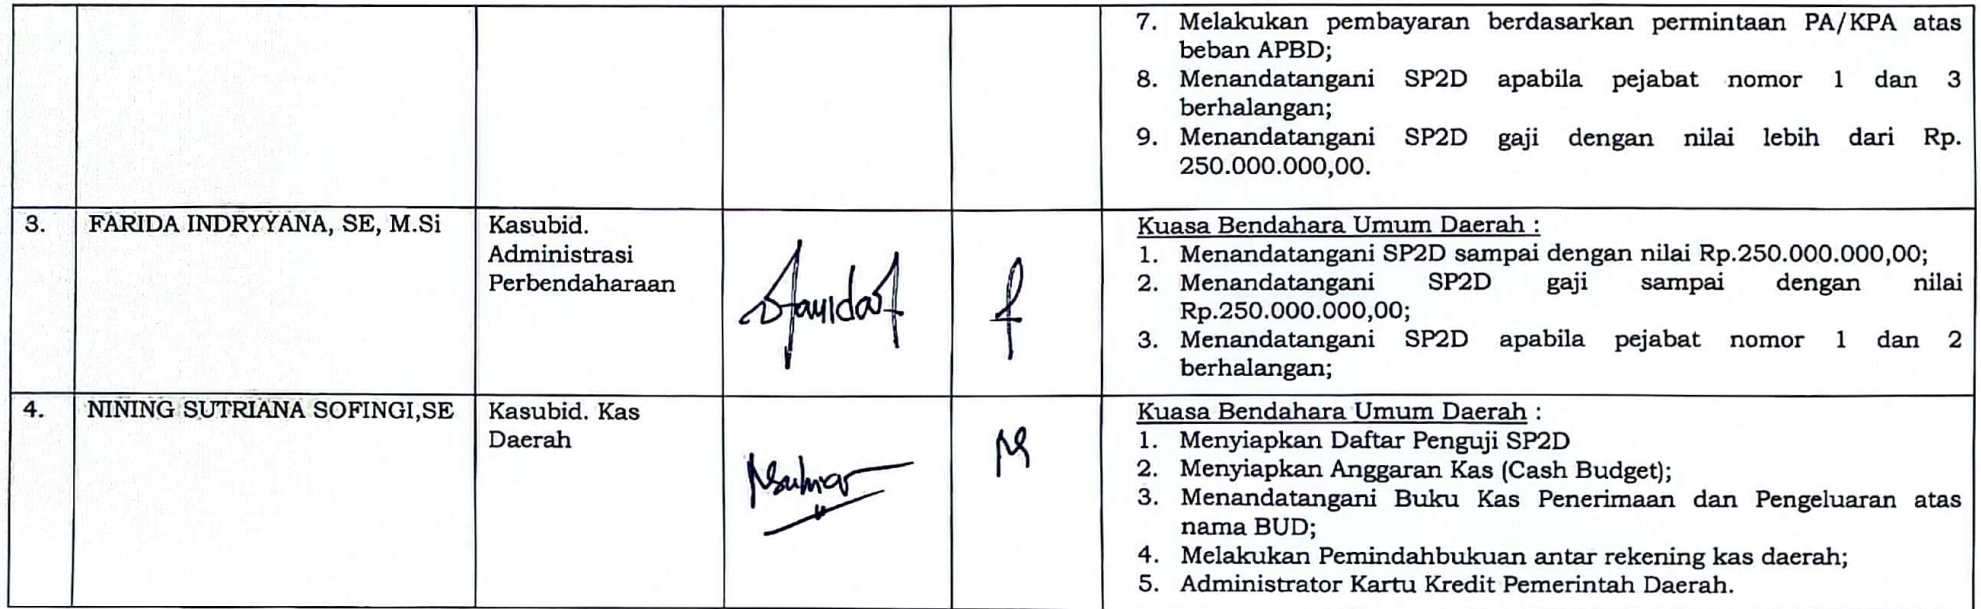 7. Melakukan pembayaran berdasarkan permintaan PA/KPA atas
beban APBD;
8. Menandatangani SP2D apabila pejabat nomor 1 dan 3
berhalangan;
9. Menandatangani SP2D gaji dengan nilai lebih dari Rp.
250.000.000,00.
3.
FARIDA INDRYYANA, SE, M.Si
Kasubid.
Administrasi
Perbendaharaan
Kuasa Bendahara Umum Daerah :
1. Menandatangani SP2D sampai dengan nilai Rp.250.000.000,00;
2. Menandatangani SP2D gaji sampai dengan nilai
Rp.250.000.000,00;
3. Menandatangani SP2D apabila pejabat nomor 1 dan 2
berhalangan;
4.
NINING SUTRIANA SOFINGI,SE
Kasubid. Kas
Daerah
Kuasa Bendahara Umum Daerah :
1. Menyiapkan Daftar Penguji SP2D
2. Menyiapkan Anggaran Kas (Cash Budget);
3. Menandatangani Buku Kas Penerimaan dan Pengeluaran atas
nama BUD;
4. Melakukan Pemindahbukuan antar rekening kas daerah;
5. Administrator Kartu Kredit Pemerintah Daerah.